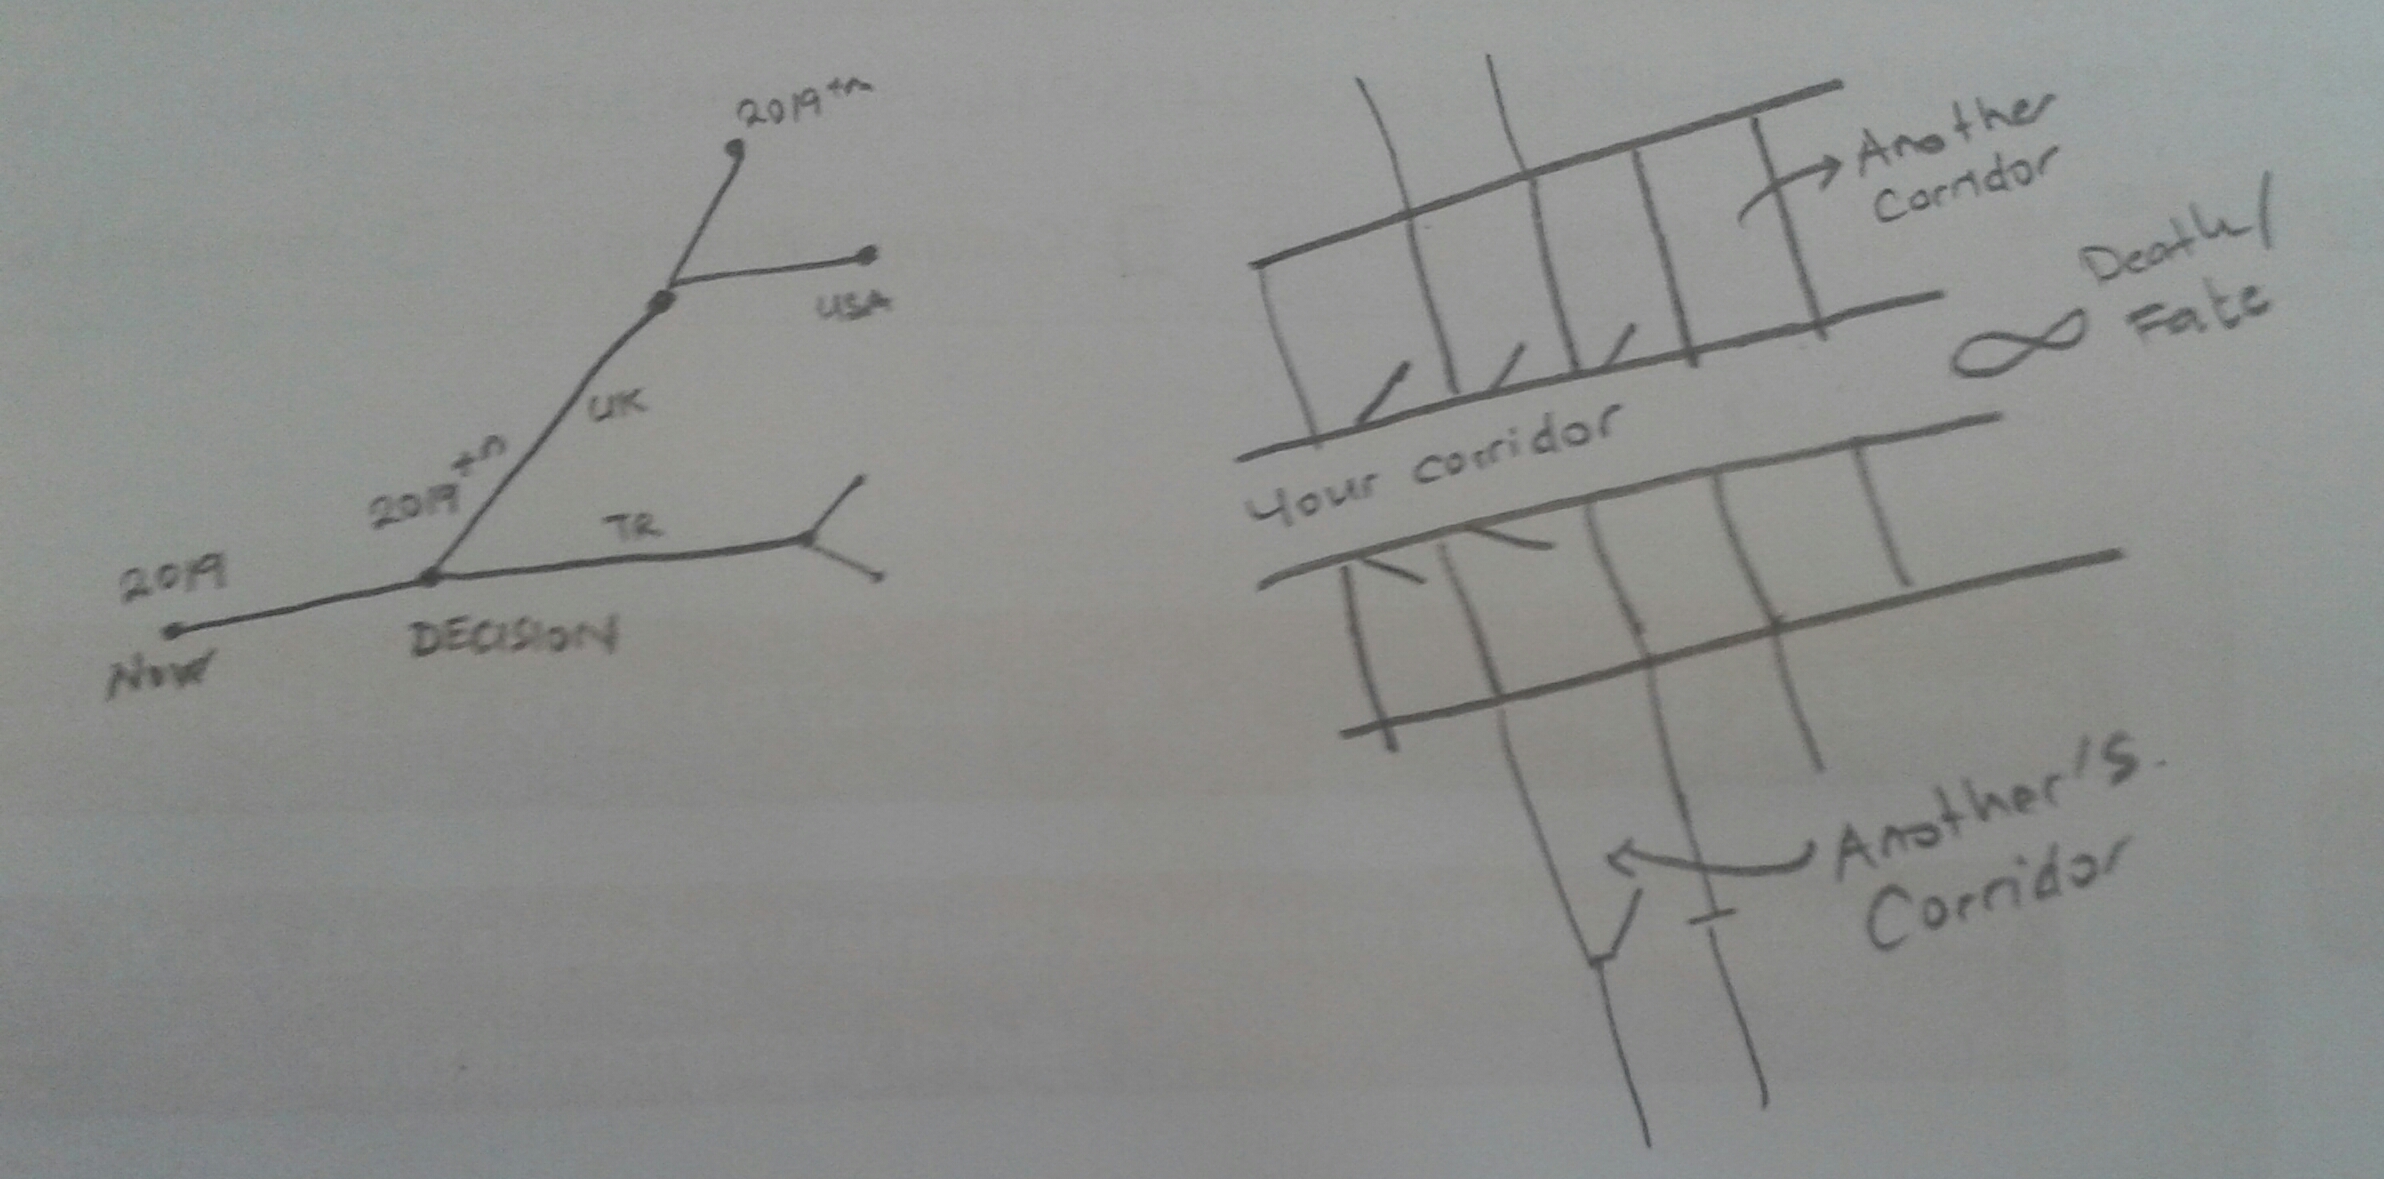 2019+m
USA
UK
2019+n
TR
2019
DECISION
Now
Another
Corridor
Death/
Fate
∞
Your corridor
Another's.
Corridor